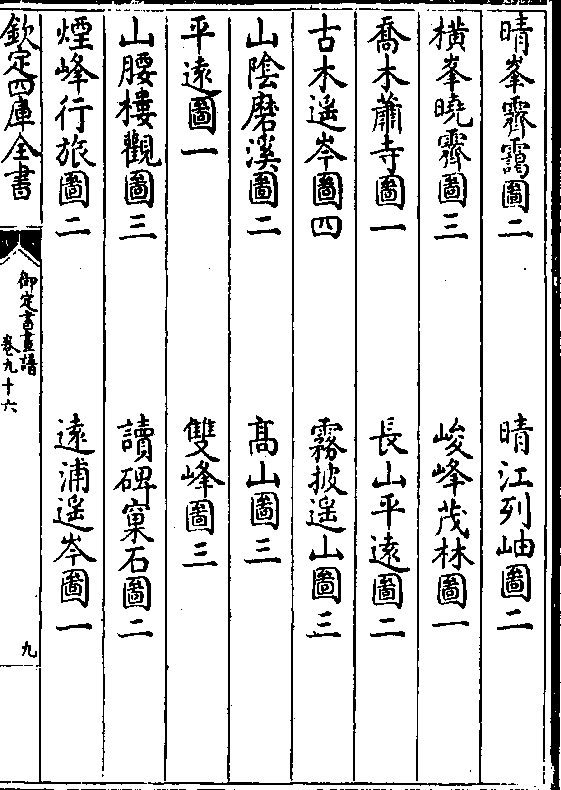 晴峯霽靄圖二　晴江列岫圖二
橫峯曉霽圖三　峻峰茂林圖一
喬木蕭寺圖一　長山平遠圖二
古木遥岑圖四　霧披遥山圖三
山陰磨溪圖二　髙山圖三
平遠圖一　雙峰圖三
山腰樓觀圖三　讀碑窠石圖二
煙峰行旅圖二　遠浦遥岑圖一
欽定四庫全書
御定書畫譜
卷九十六
九